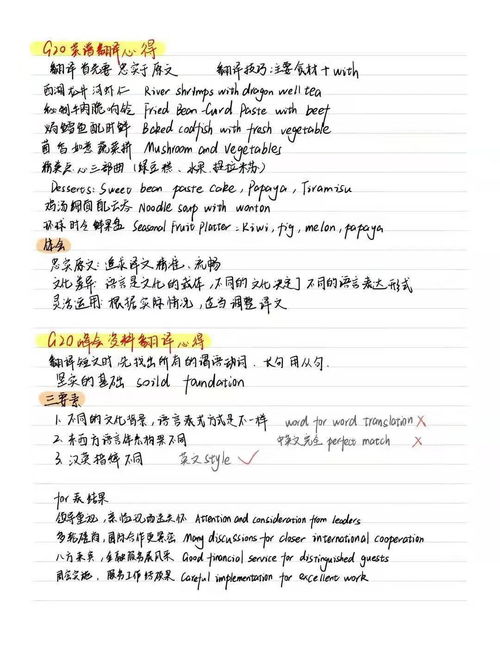 G20 菜谱翻译心得
翻译首先要忠实于原文 翻译技巧:主要食材 + with
西湖龙井浸虾仁 River shrimps with dragon well tea
牛肉脆响铃 Fried Bean-Curd Paste with beef
鳕鱼配时鲜 Baked codfish with fresh vegetable
菌香如意蔬菜拼 Mushroom and vegetables
精美点心三部曲 (绿豆糕、水果、提拉米苏)
Desserts: Sweet bean paste cake, Papaya, Tiramisu
鸡汤配云吞 Noodle soup with wonton
环球时令鲜果盘 Seasonal Fruit Platter: Kiwi, fig, melon, papaya
体会
忠实原文: 追求译文精准、流畅
文化差异: 语言是文化的载体,不同的文化决定了不同的语言表达形式
灵活运用: 根据实际情况,适当调整译文
G20峰会资料翻译心得
翻译短文时,先找出所有的谓语动词. 长句用从句.
坚实的基础 soild foundation
三要素
1. 不同的文化背景,语言表达方式是不一样 word for word translation ×
2. 东西方语言体系构架不同 中英文完全 perfect match ×
3. 汉英措辞不同 英文style ✓
for 表结果
领导重视, Attention and consideration from leaders
多轮磋商,国际合作更紧密 Many discussions for closer international cooperation
八方来宾,金融服务展风采 Good financial service for distinguished guests
周密实施、服务工作结硕果 Careful implementation for excellent work